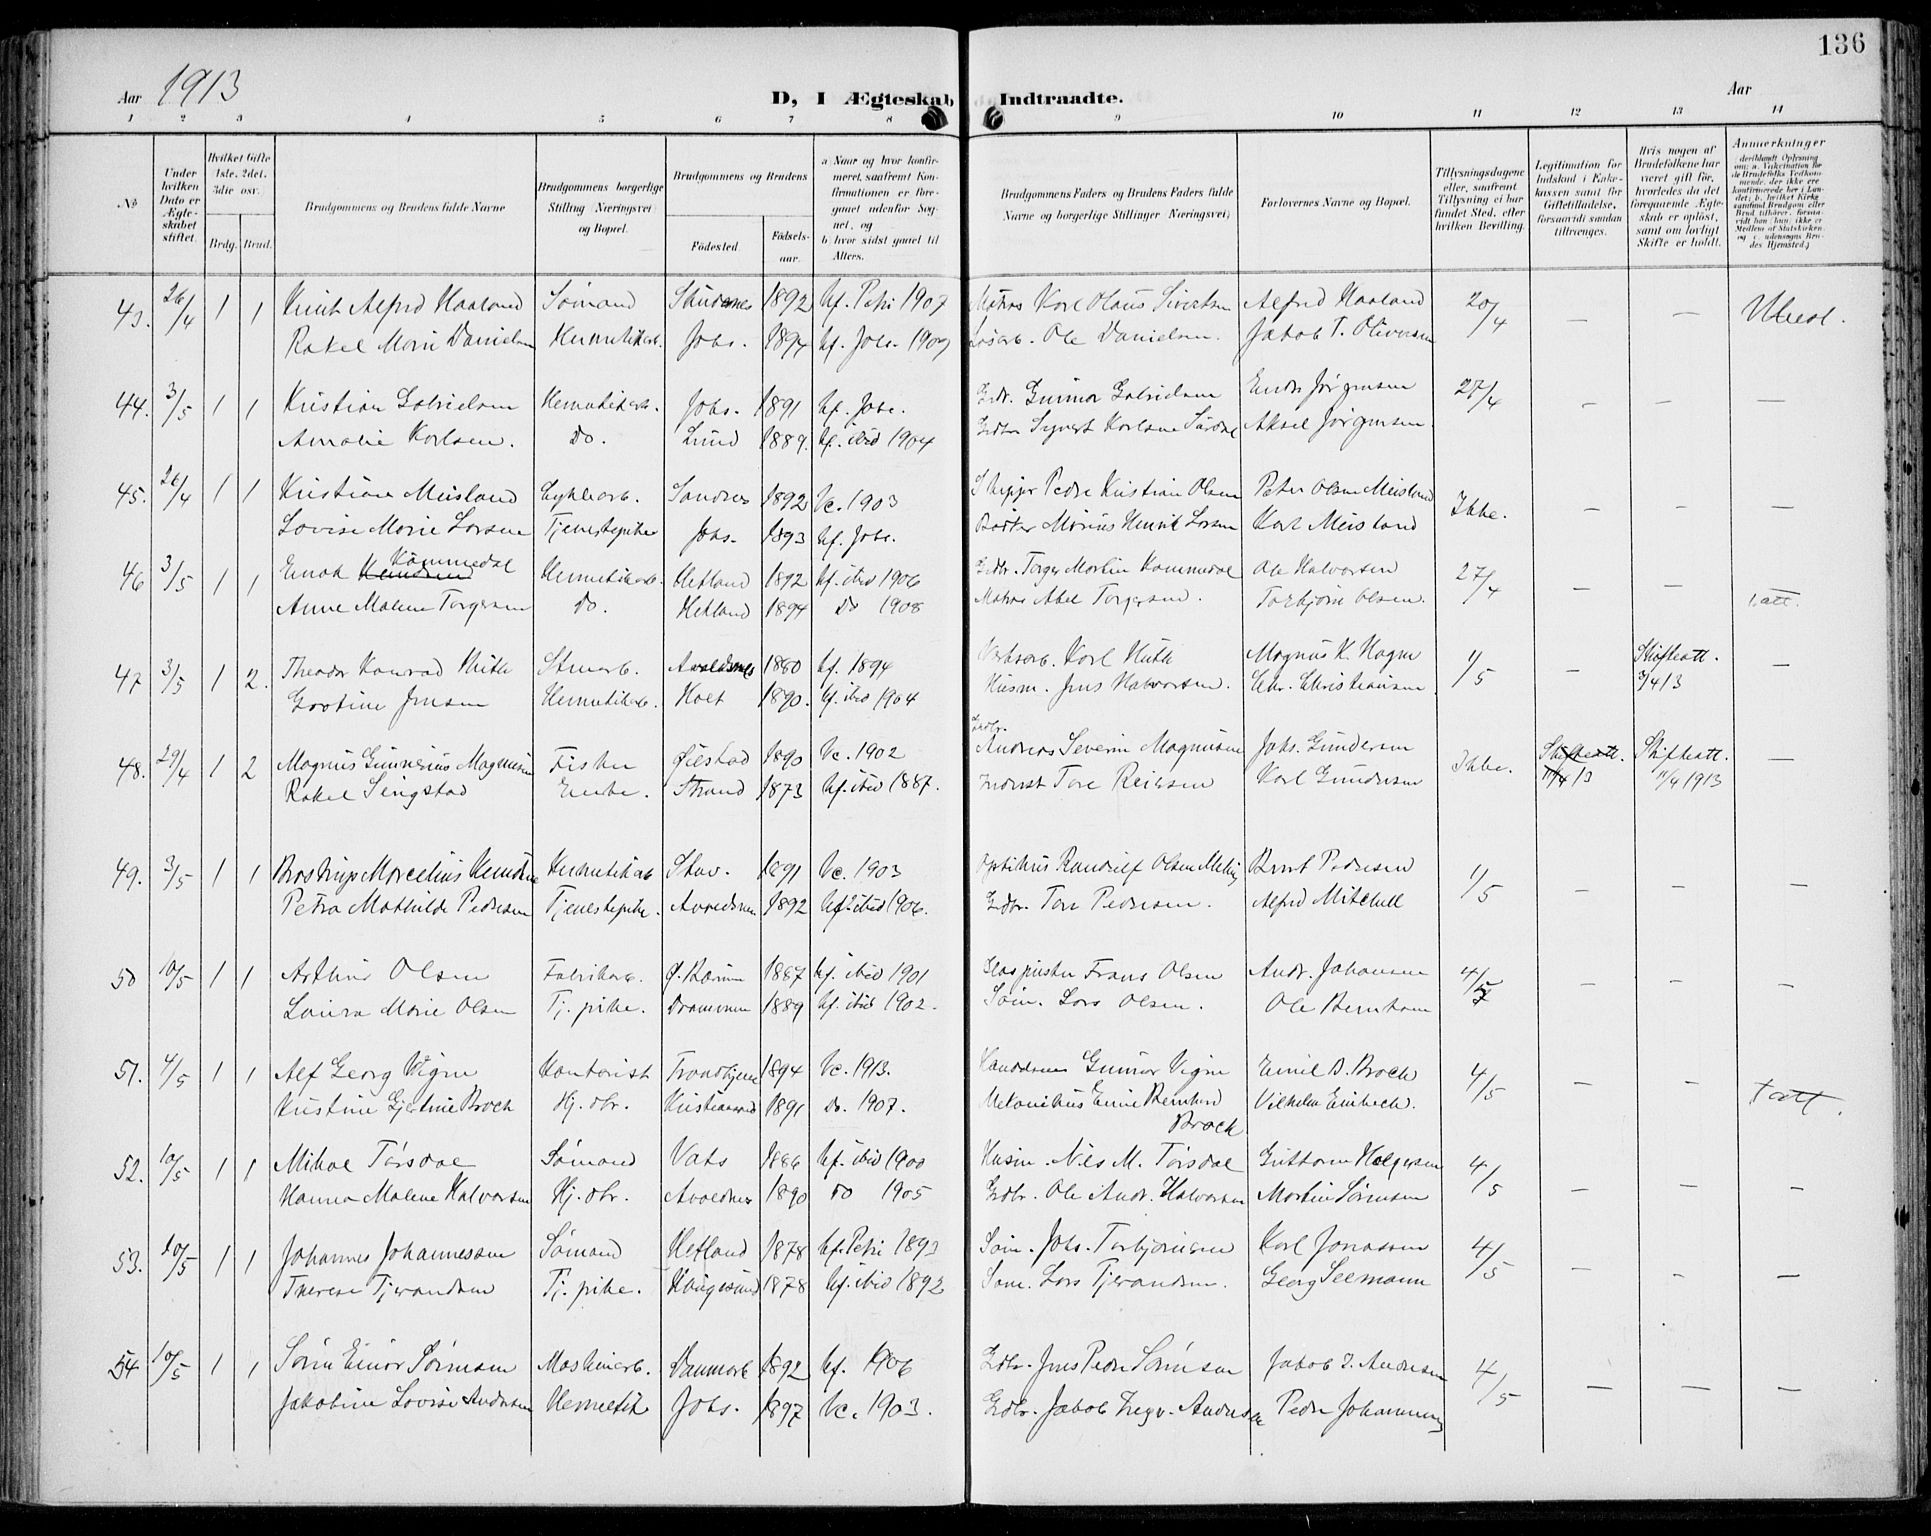 136
Aar 1913
D, I Ægteskab Indtraadte.
Aar
1 2 3 4 5 6 7 8 9 10 11 12 13 14
No
Under hvilken Dato er Ægteskabet stiftet.
Hvilket Gifte 1ste, 2det, 3die osv.
Brdg. Brud.
Brudgommens og Brudens fulde Navne
Brudgommens borgerlige Stilling Næringsvei og Bopæl.
Brudgommens og Brudens
Födested. Födsels-aar.
a Naar og hvor konfirmeret, saafremt Konfirmationen er foregaaet udenfor Sognet, og
b hvor sidst gaaet til Alters.
Brudgommens Faders og Brudens Faders fulde Navne og borgerlige Stillinger Næringsvei,
Forlovernes Navne og Bopæl.
Tillysningsdagene eller, saafremt Tillysning ei har fundet Sted, efter hvilken Bevilling.
Legitimation for Indskud i Enkekassen samt for Giftetilladelse, forsaavidt saadan tiltrænges.
Hvis nogen af Brudefolkene har været gift för, hvorledes da det foregaaende Ægteskab er oplöst, samt om lovligt Skifte er holdt.
Anmerkninger
43. 26/4 1 1 Knut Alfred Haaland Sömand Skudesnes 1892 kf. Petri 1907 Matros Karl Olaus Sivertsen Alfred Haaland 20/4 — —
Rakel Marie Danielsen Hermetikarb. Johs. 1894 kf. Johs. 1909 Lösarb. Ole Danielsen. Jakob T. Oliversen
44. 3/5 1 1 Kristian Gabrielsen Hermetikarb. Johs. 1891 kf. Johs. Gdbr. Gunnar Gabrielsen Endre Jörgensen 27/4 — — —
Amalie Karlsen. Do. Lund 1889. kf. ibid 1904 Gdbr Sigvart Karlsen Aksel Jörgensen.
45. 26/4 1 1 Kristian Meisland Cyklearb. Sandnes 1892 Vc. 1903 Skipper Peder Kristian Olsen Peter Olsen Meisland Ikke. — — —
Lovise Marie Larsen Tjenestepike Johs. 1893 kf. Johs. Bödker Marius Henrik Larsen Karl Meisland
46 3/5 1 1 Enok Kommedal Hermetikarb. Hetland 1892 kf. ibid 1906 Gdbr. Torger Martin Kommedal Ole Halvorsen 27/4 — —
Anne Malene Torgersen Do. Hetland 1894 Do 1908 Matros Abel Torgersen. Torbjörn Olsen. att.
47 3/5 1 2. Theodor Konrad Huth Stenarb. Avaldsnes 1880 kf. 1894 Karl Huth Magnus K. Hagen 1/5 — Skifteatt. —
Gartine Jensen Hermetikarb. Holt 1890. kf. ibid 1904 Husm. Jens Halvorsen. Chr. Christiansen 3/4 13
48. 29/4 1 2 Magnus Gunnerius Magnusen Fisker Öiestad 1890 Vc. 1902 Gdbr. Andreas Severin Magnusen Johs. Gundersen Ikke. Skifteatt. Skifteatt. —
Rakel Tengstad Enke. Strand 1873 kf. ibid 1887. Inderst Tore Reiersen Karl Gundersen 11/4 13 11/4 1913
49. 3/5 1 1 Marcelius Hermetikarb Stav. 1891 Vc. 1903 Optikus Randulf Olsen Meling Bernt Pedersen 1/5 — — —
Petra Mathilde Pedersen Tjenestepike. Avaldsnes 1892 kf. ibid 1906. Gdbr. Tore Pedersen. Alfred Mitchell
50 10/5 1 1 Arthur Olsen Fabrikarb. Ö. Bærum 1887 kf. ibid 1901 Glaspuster Frans Olsen Andr. Johansen 4/5 — — —
Laura Marie Olsen Tj. pike. Drammen 1889 kf. ibid 1902. Söm. Lars Olsen. Ole Berntsen
51. 4/5 1 1 Alf Georg Vigen Kontorist Trondhjem 1894 Vc. 1913. Gunnar Vigen Emil B. Brock 4/5 — —
Kristine Gjertine Brock Hj. dtr. Kristiansand 1891 Do. 1907. Mekanikus Emil Bernhard Brock Vilhelm Einbeck. att.
52. 10/5 1 1 Mikal Torsdal Sömand Vats 1886 kf. ibid 1900 Husm. Nils M. Torsdal Guttorm Helgesen 4/5 — — —
Hanna Malene Halvorsen Hj. dtr. Avaldsnes 1890 Do 1905 Gdbr. Ole Andr. Halvorsen Martin Sörensen
53. 10/5 1 1 Johannes Johannessen Sömand Hetland 1878 kf. Petri 1893 Söm. Johs. Torbjörnsen Karl Jonassen 4/5 — — —
Therese Tjerandsen Tj. pike. Haugesund 1878 kf. ibid 1892 Söm. Lars Tjerandsen. Georg Seemann
54 10/5 1 1 Sören Einar Sörensen Maskinarb. Danmark 1892 kf. 1906 Gdbr. Jens Peder Sörensen Jakob I. Andersen 4/5 — — —
Jakobine Lovise Andersen Hermetik Johs. 1897 Vc. 1903. Gdbr. Jakob Andersen Peder Johannesen